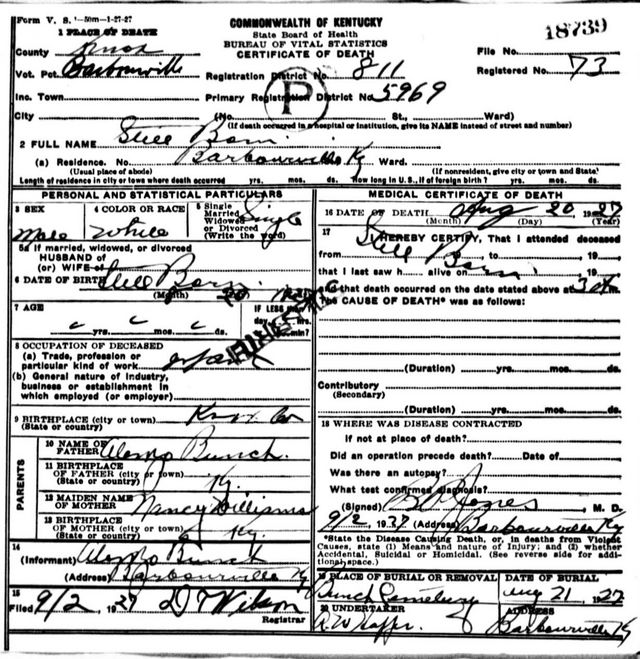 Form V. S. 1-50m-1-27-27
COMMONWEALTH OF KENTUCKY
State Board of Health
BUREAU OF VITAL STATISTICS
CERTIFICATE OF DEATH
18739
1 PLACE OF DEATH
County Knox
File No.
Vot. Pct. Barbourville
Registration District No. 811
Registered No. 73
Inc. Town
Primary Registration District No. 5969
P
City (No. St., Ward)
(If death occurred in a hospital or institution, give its NAME instead of street and number)
2 FULL NAME Still Born
(a) Residence. No. Barbourville Ky Ward.
(Usual place of abode) (If nonresident, give city or town and State)
Length of residence in city or town where death occurred yrs. mos. ds. How long in U. S., if of foreign birth? yrs. mos. ds.
PERSONAL AND STATISTICAL PARTICULARS
3 SEX
Male
4 COLOR OR RACE
White
5 Single
Married
Widowed
or Divorced
(Write the word)
Single
5a If married, widowed, or divorced
HUSBAND of
(or) WIFE of
6 DATE OF BIRTH Still Born
(Month)
7 AGE
yrs. mos. ds.
IF LESS than
day, hrs.
min?
8 OCCUPATION OF DECEASED
(a) Trade, profession or
particular kind of work
(b) General nature of industry,
business or establishment in
which employed (or employer)
9 BIRTHPLACE (city or town) Knox Co
(State or country)
PARENTS
10 NAME OF
FATHER Alonzo Bunch
11 BIRTHPLACE
OF FATHER (city or town)
(State or country) Ky.
12 MAIDEN NAME
OF MOTHER Nancy Williams
13 BIRTHPLACE
OF MOTHER (city or town)
(State or country) Ky.
14
(Informant) Alonzo Bunch
(Address) Barbourville Ky
15
Filed 9/2 1927 D T Wilson
Registrar
MEDICAL CERTIFICATE OF DEATH
16 DATE OF DEATH Aug 20 1927
(Month) (Day) (Year)
17
I HEREBY CERTIFY, That I attended deceased
from Still Born, 19 to 19
that I last saw h alive on 19
and that death occurred on the date stated above at
The CAUSE OF DEATH* was as follows:
(Duration) yrs. mos. ds.
Contributory
(Secondary)
(Duration) yrs. mos. ds.
18 WHERE WAS DISEASE CONTRACTED
If not at place of death?
Did an operation precede death? Date of
Was there an autopsy?
What test confirmed diagnosis?
(Signed) Jones, M. D.
9/2, 1927 (Address) Barbourville Ky
*State the Disease Causing Death, or, in deaths from Violent
Causes, state (1) Means and nature of Injury; and (2) whether
Accidental, Suicidal or Homicidal. (See reverse side for addi-
tional space.)
19 PLACE OF BURIAL OR REMOVAL
Bunch Cemetery
DATE OF BURIAL
Aug 21 1927
20 UNDERTAKER
ADDRESS
Barbourville Ky